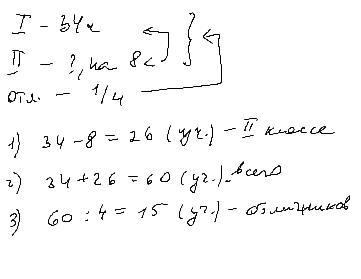 I – 34 ч
II – ?, на 8 <
отл. – 1/4
1) 34 – 8 = 26 (уч.) – II классе
2) 34 + 26 = 60 (уч.) – всего
3) 60 : 4 = 15 (уч.) – отличников